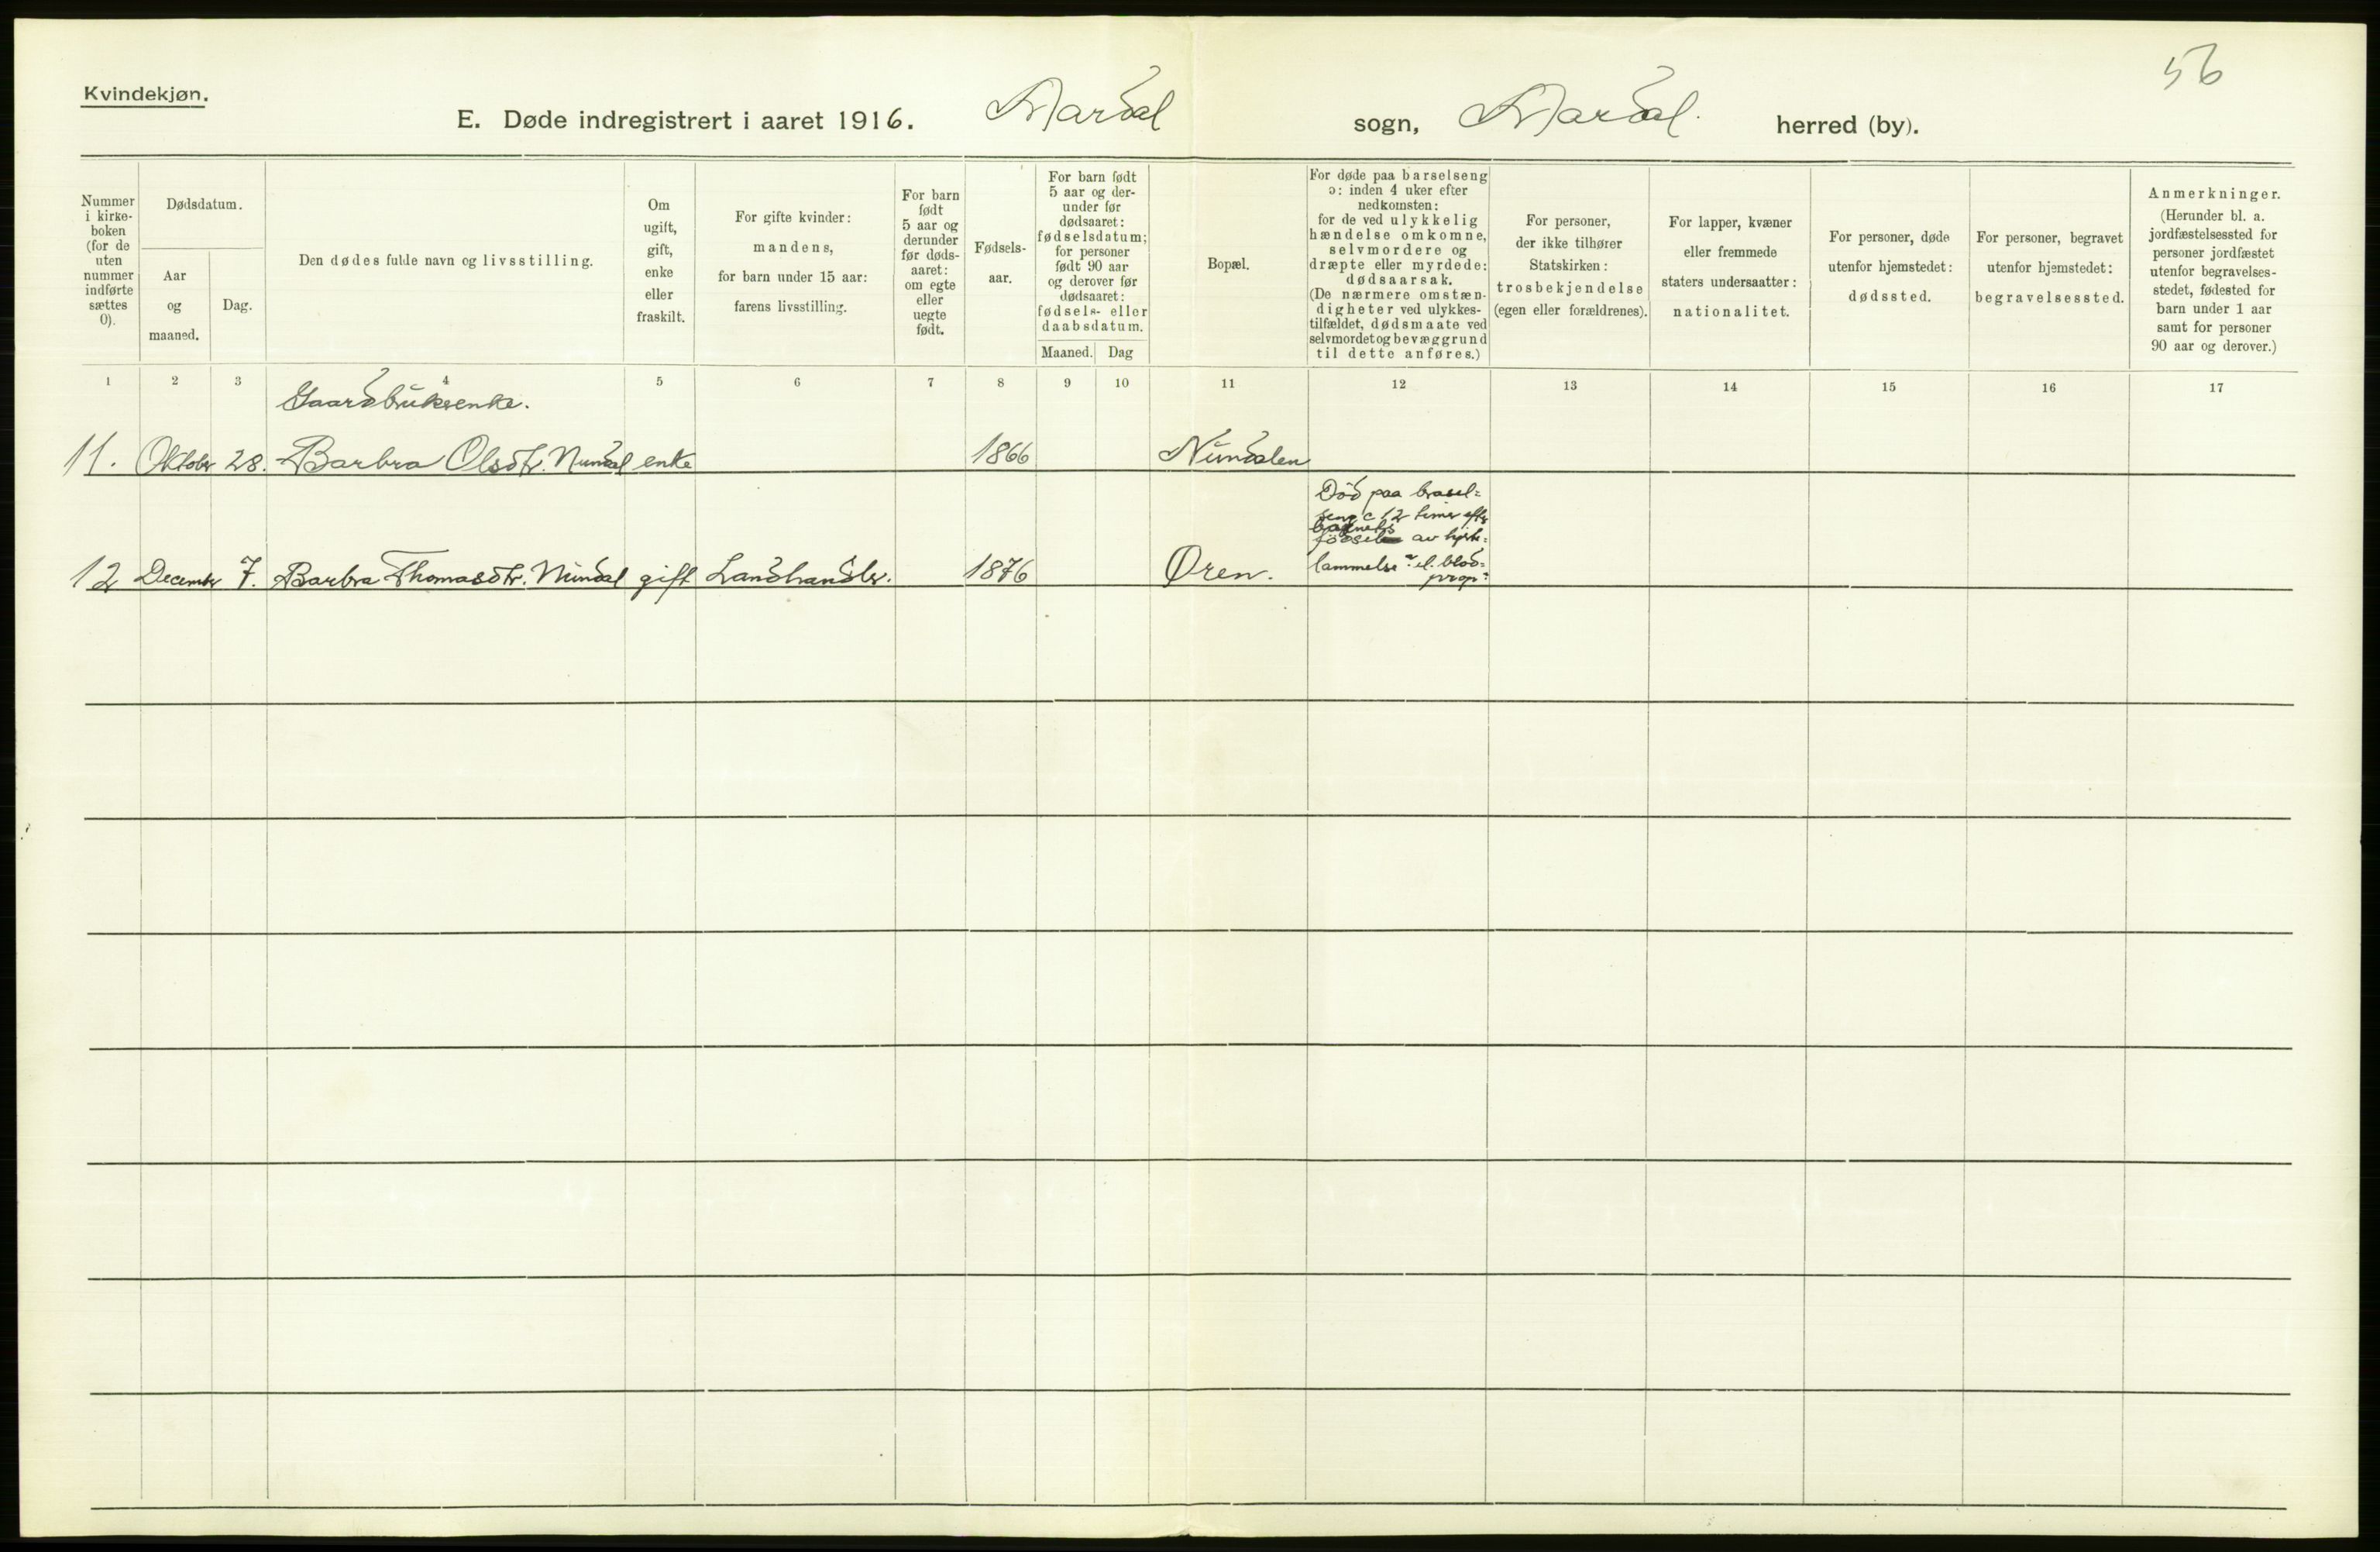 56
Kvindekjøn.
E. Døde indregistrert i aaret 1916. Aardal sogn, Aardal. herred (by).
Nummer i kirke- boken (for de uten nummer indførte sættes 0).
Dødsdatum.
Aar og maaned.
Dag.
Den dødes fulde navn og livsstilling.
Om ugift, gift, enke eller fraskilt.
For gifte kvinder: mandens, for barn under 15 aar: farens livsstilling.
For barn født 5 aar og derunder før døds- aaret: om egte eller uegte født.
Fødsels- aar.
For barn født 5 aar og der- under før dødsaaret: fødselsdatum; for personer født 90 aar og derover før dødsaaret: fødsels- eller daabsdatum.
Maaned. Dag
Bopæl.
For døde paa barselseng ɔ: inden 4 uker efter nedkomsten: for de ved ulykkelig hændelse omkomne, selvmordere og dræpte eller myrdede: dødsaarsak. (De nærmere omstæn- digheter ved ulykkes- tilfældet, dødsmaate ved selvmordet og bevæggrund til dette anføres.)
For personer, der ikke tilhører Statskirken: trosbekjendelse (egen eller forældrenes).
For lapper, kvæner eller fremmede staters undersaatter: nationalitet.
For personer, døde utenfor hjemstedet: dødssted.
For personer, begravet utenfor hjemstedet: begravelsessted.
Anmerkninger. (Herunder bl. a. jordfæstelsessted for personer jordfæstet utenfor begravelses- stedet, fødested for barn under 1 aar samt for personer 90 aar og derover.)
1 2 3 4 5 6 7 8 9 10 11 12 13 14 15 16 17
Gaardbruksenke.
11. Oktober 28. Barbra Olsdtr. Nundal enke 1866 Nundalen
Død paa brasel=
seng c 12 timer efter
barnets
fødsel av hjerte=
12 December 7. Barbra Thomasdtr. Nundal gift Landhandler. 1876 Øren. lammelse? el. blod=
prop?